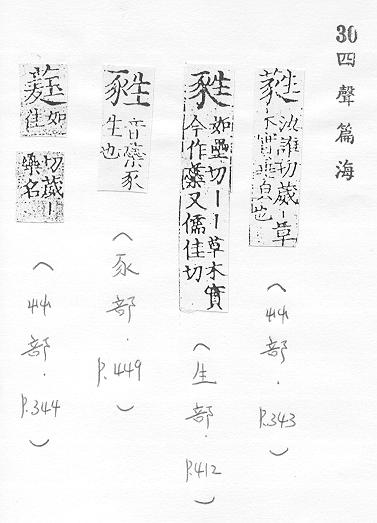 30四聲篇海
蕤
汝誰切葳-草
木實垂皃也
(艸部.P.343)
甤
如壘切--草木實
今作蘂又儒佳切
(生部.P.412)
甤
音蘂豕
生也
(豕部.P.449)
如
佳
切葳-
藥名
(艸部.P.344)